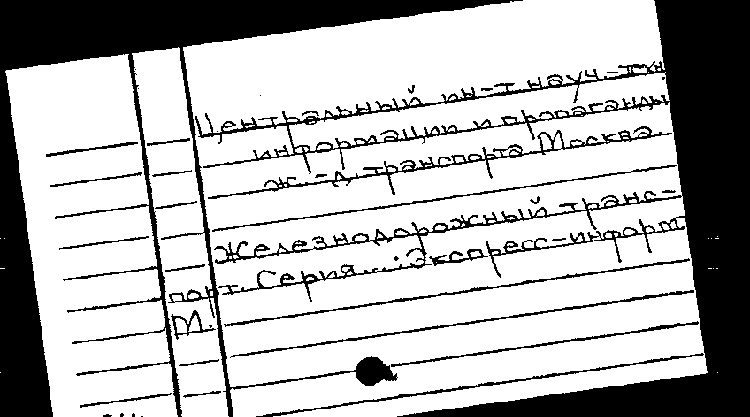 Центральный ин-т науч.-техн.
информации и пропаганды
ж.-д. транспорта. Москва.
Железнодорожный транс-
порт. Серия...: Экспресс-информ.
М.